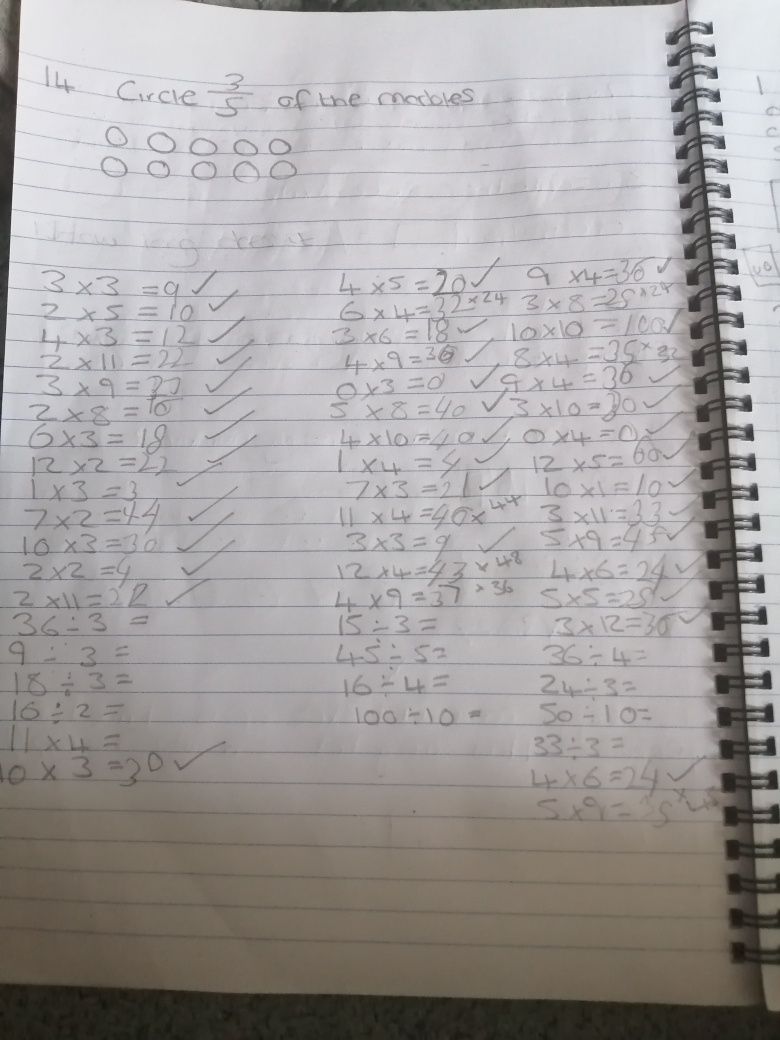 14 Circle 3/5 of the marbles
3 x 3 = 9 ✓
2 x 5 = 10 ✓
4 x 3 = 12 ✓
2 x 11 = 22 ✓
3 x 9 = ✓
2 x 8 = 16 ✓
6 x 3 = 18 ✓
12 x 2 = 22 ✓
1 x 3 = 3 ✓
7 x 2 = 44 ✓
10 x 3 = 30 ✓
2 x 2 = 4 ✓
2 x 11 = 22 ✓
36 ÷ 3 =
9 ÷ 3 =
18 ÷ 3 =
16 ÷ 2 =
11 x 4 =
10 x 3 = 30 ✓
4 x 5 = 20 ✓
6 x 4 = 32 x 24
3 x 6 = 18 ✓
4 x 9 = 36 ✓
0 x 3 = 0 ✓
5 x 8 = 40 ✓
4 x 10 = 40 ✓
1 x 4 = 4 ✓
7 x 3 = 21 ✓
11 x 4 = 40 x 44
3 x 3 = 9 ✓
12 x 4 = 43 x 48
4 x 9 = 37 x 36
15 ÷ 3 =
45 ÷ 5 =
16 ÷ 4 =
100 ÷ 10 =
9 x 4 = 36 ✓
3 x 8 = 25 x 24
10 x 10 = 100 ✓
8 x 4 = 35 x 32
9 x 4 = 36 ✓
3 x 10 = 30 ✓
0 x 4 = 0 ✓
12 x 5 = 60 ✓
10 x 1 = 10 ✓
3 x 11 = 33 ✓
5 x 9 = 45 ✓
4 x 6 = 24 ✓
5 x 5 = 25 ✓
3 x 12 = 36 ✓
36 ÷ 4 =
24 ÷ 3 =
50 ÷ 10 =
33 ÷ 3 =
4 x 6 = 24 ✓
5 x 9 = 35 x 45